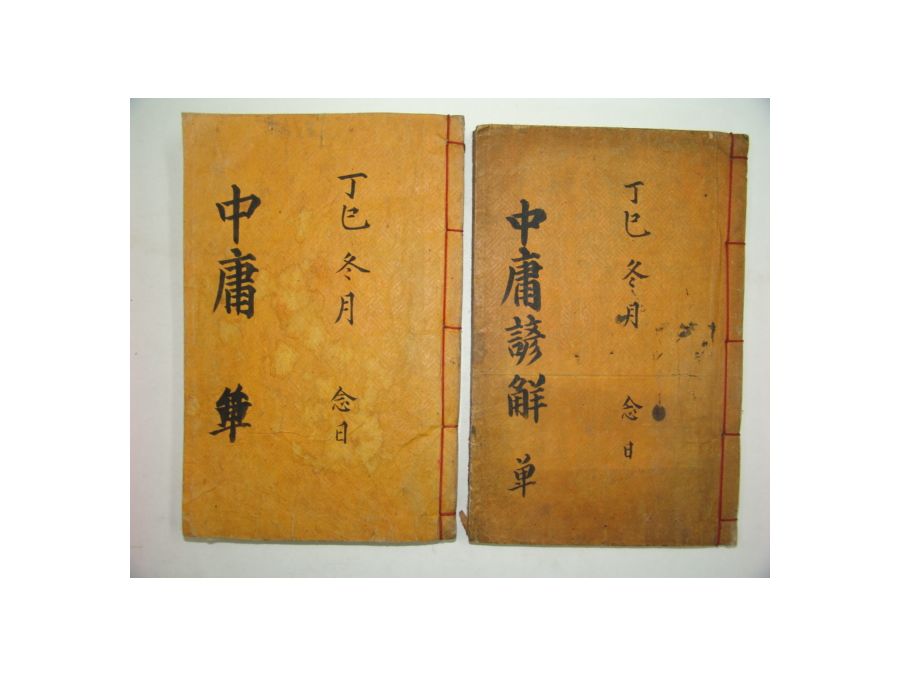 丁巳 冬月 念日
中庸 単
丁巳 冬月 念日
中庸諺觧 単